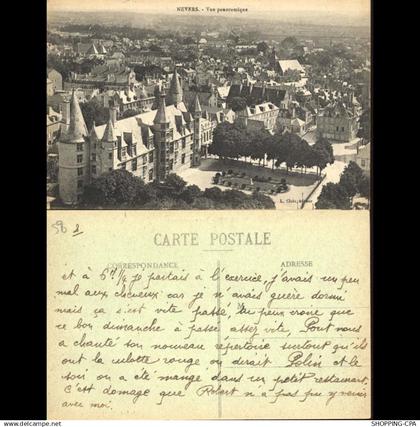 NEVERS. - Vue panoramique
58
CARTE POSTALE
CORRESPONDANCE
ADRESSE
et à 5h ½ je partais à l'exercice, j'avais un peu
mal aux cheveux car je n'avais guère dormi
mais ça s'est vite passé, tu peux croire que
ce bon dimanche a passé assez vite, Pont nous
a chanté son nouveau répertoire surtout qu'ils
ont la culotte rouge on dirait Polin et le
soir on a été mangé dans un petit restaurant.
C'est domage que Robert n'a pas pu y venir
avec moi.
www.shopping-cpa.com
©SHOPPING-CPA